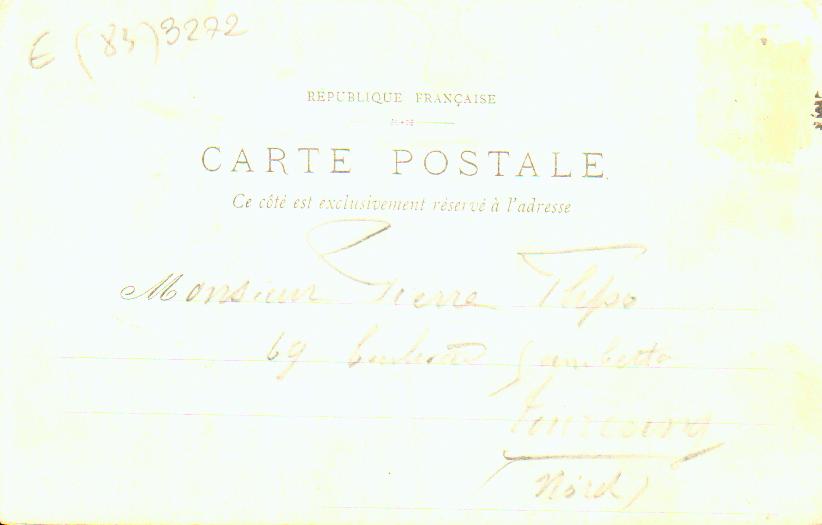 E (83) 3272
RÉPUBLIQUE FRANÇAISE
CARTE POSTALE
Ce côté est exclusivement réservé à l'adresse
Monsieur Pierre
69 Gambetta
Tourcoing
(Nord)